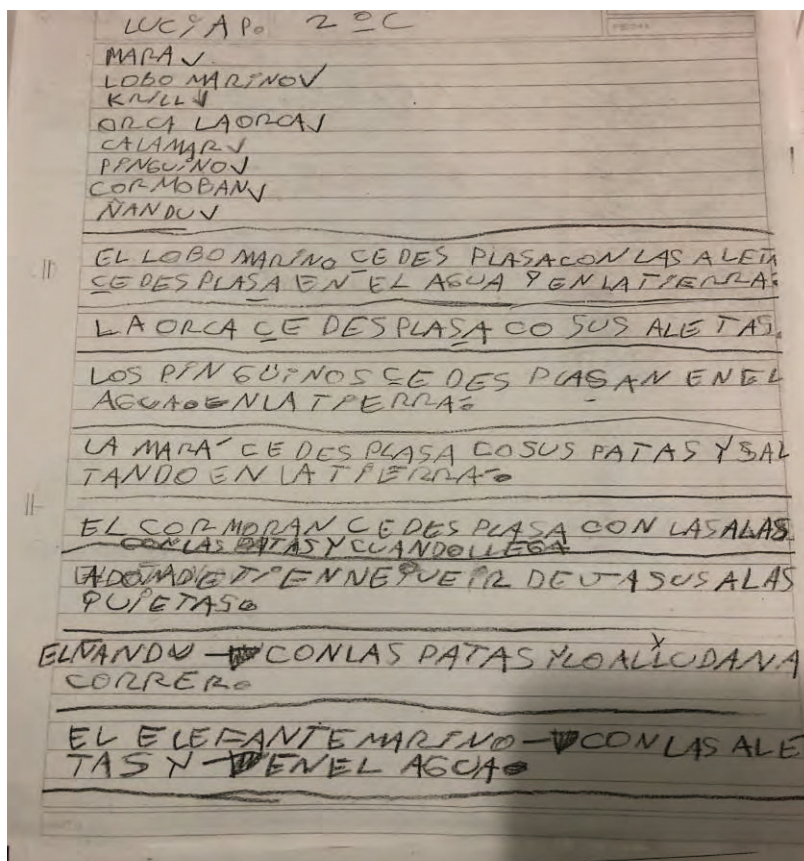 LUCÍA P. 2ºC
MARA ✓
LOBO MARINO ✓
KRILL ✓
ORCA LA ORCA ✓
CALAMAR ✓
PINGUINO ✓
CORMOBAN ✓
ÑANDU ✓
EL LOBO MARINO CE DES PLASA CON LAS ALETA
CE DES PLASA EN EL AGUA Y EN LA TIERRA.
LA ORCA CE DES PLASA CO SUS ALETAS.
LOS PINGÜINOS CE DES PLASAN EN EL
AGUA EN LA TIERRA.
LA MARA CE DES PLASA CO SUS PATAS Y SAL
TANDO EN LA TIERRA.
EL CORMORAN CE DES PLASA CON LAS ALAS
CON LAS PATAS Y CUANDO LLEGA
TIENNE QUE IR DEJA SUS ALAS
QUIETAS.
EL ÑANDU → CON LAS PATAS Y LO ALLUDAN A
CORRER.
EL ELEFANTE MARINO → CON LAS ALE
TAS Y → EN EL AGUA.